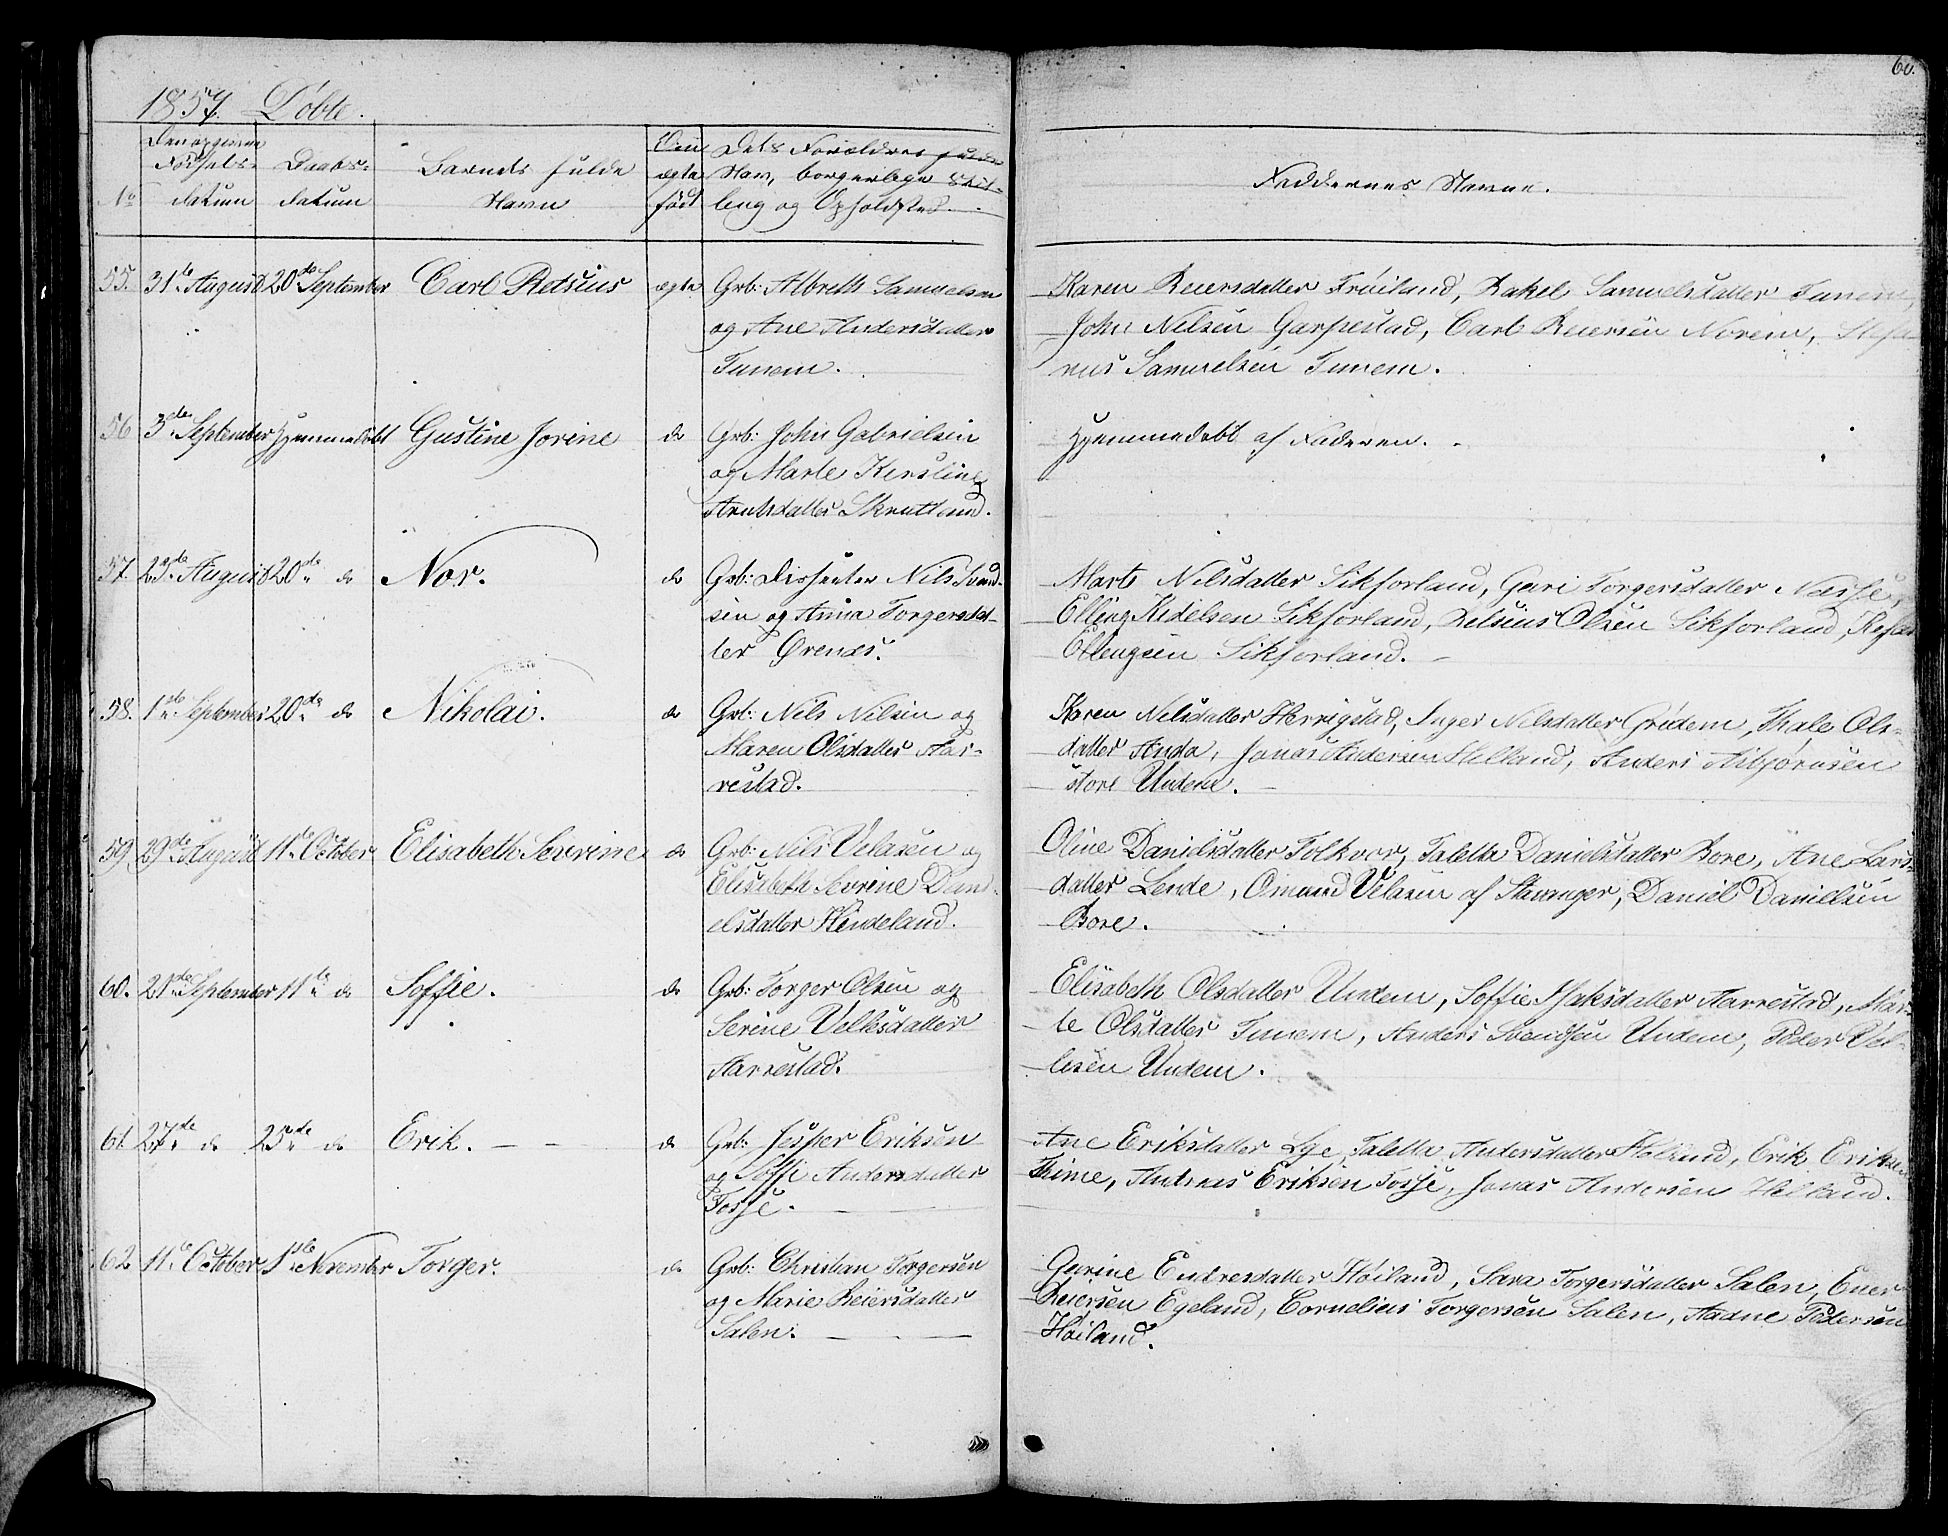 60.
1857. Döbte.
No
Den opgivne Födsels-datum
Daabs-datum
Barnets fulde Navn
Om ægte födt
Dets Forældres fulde Navn, borgerlige Stilling og Opholdsted.
Faddernes Navne.
55. 31te August 20de September Carl Retsius ægte Grb: Albreth Samuelsen
og Ane Andersdatter
Tunem.
Karen Reiersdatter Fröiland, Rakel Samuelsdatter Tunem,
John Nilsen Garpestad, Carl Reiersen Norem, Stefa
nus Samuelsen Tunem.
56 3de September Hjemmedöbt Gustine Jorine do Grb: John Gabrielsen
og Marte Kirstine
Arnesdatter Skrutland.
Hjemmedöbt af Faderen.
57. 23de August 20de do Nor. do Grb: Dissenter Nils Svend-
sen og Anna Torgersdat-
ter Örenæs.
Marte Nilsdatter Sikforland, Guri Torgersdatter Næsse,
Elling Kidelsen Sikforland, Zelsius Olsen Sikforland,
Ellengsen Sikforland.
58. 1ste September 20de do Nikolai. do Grb: Nils Nilsen og
Maren Olsdatter Aar-
restad.
Karen Nilsdatter Herrigstad, Inger Nilsdatter Grödem, Thale Ols-
datter Anda, Jonas Andersen Helland, Anders Asbjörnsen
store Undem.
59. 29de August 11te October Elisabeth Severine do Grb: Nils Velasen og
Elisabeth Sevrine Dani-
elsdatter Hindeland.
Oline Danielsdatter Folkvor, Taletta Danielsdatter Bore, Ane Lars-
datter Lende, Omund Velasen af Stavanger, Daniel Danielsen
Bore.
60. 21de September 11te do Soffie. do Grb: Torger Olsen og
Serine Velksdatter
Aarrestad.
Elisabeth Olsdatter Undem, Soffie Isaksdatter Aarrestad, Mar-
te Olsdatter Tunem, Anders Svendsen Undem, Peder Vel-
lesen Undem.
61. 27de do 25de do Erik. do Grb: Jesper Eriksen
og Soffi Andersdatter
Fosse.
Ane Eriksdatter Lye, Taletta Andersdatter Holland, Erik Eriksen
Time, Andreas Eriksen Fosse, Jonas Andersen Helland.
62 11te October 1ste November Torger. do Grb: Christian Torgersen
og Marie Reiersdatter
Salen.
Gurine Endresdatter Höiland, Sara Torgersdatter Salen, Ener
Reiersen Egeland, Cornelius Torgersen Salen, Aadne Pedersen
Höiland.